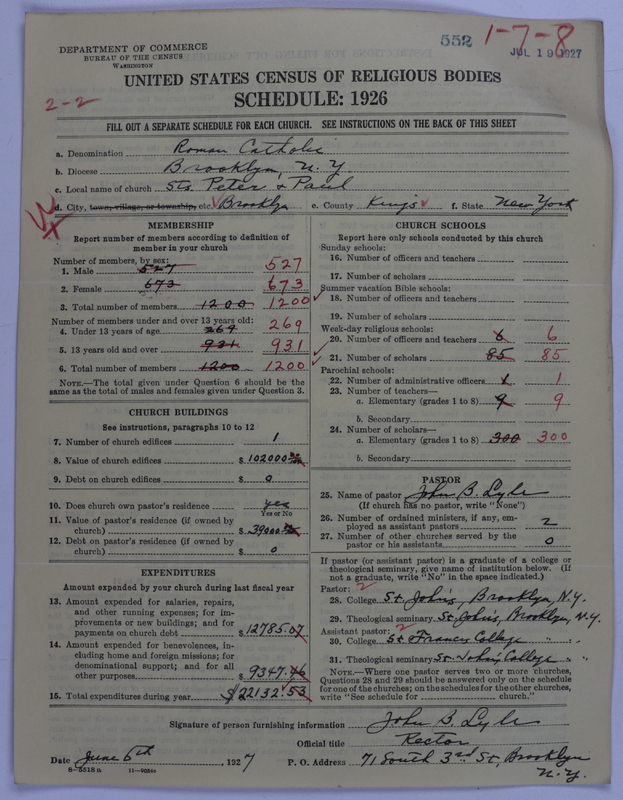 552 1-7-8
JUL 19 1927
DEPARTMENT OF COMMERCE
BUREAU OF THE CENSUS
WASHINGTON
UNITED STATES CENSUS OF RELIGIOUS BODIES
2-2
SCHEDULE: 1926
FILL OUT A SEPARATE SCHEDULE FOR EACH CHURCH. SEE INSTRUCTIONS ON THE BACK OF THIS SHEET
a. Denomination Roman Catholic
b. Diocese Brooklyn, N.Y
c. Local name of church Sts. Peter & Paul
d. City, town, village, or township, etc. Brooklyn e. County Kings f. State New York
MEMBERSHIP
Report number of members according to definition of
member in your church
Number of members, by sex:
1. Male 527 527
2. Female 673 673
3. Total number of members 1200 1200
Number of members under and over 13 years old:
4. Under 13 years of age 269 269
5. 13 years old and over 931 931
6. Total number of members 1200 1200
NOTE.—The total given under Question 6 should be
same as the total of males and females given under Question 3.
CHURCH BUILDINGS
See instructions, paragraphs 10 to 12
7. Number of church edifices 1
8. Value of church edifices $ 102000
9. Debt on church edifices $ 0
10. Does church own pastor's residence yes
Yes or No
11. Value of pastor's residence (if owned by
church) $ 39000
12. Debt on pastor's residence (if owned by
church) $ 0
EXPENDITURES
Amount expended by your church during last fiscal year
13. Amount expended for salaries, repairs,
and other running expenses; for im-
provements or new buildings; and for
payments on church debt $ 12785.07
14. Amount expended for benevolences, in-
cluding home and foreign missions; for
denominational support; and for all
other purposes 9347.46
15. Total expenditures during year $ 22132.53
CHURCH SCHOOLS
Report here only schools conducted by this church
Sunday schools:
16. Number of officers and teachers
17. Number of scholars
Summer vacation Bible schools:
18. Number of officers and teachers
19. Number of scholars
Week-day religious schools:
20. Number of officers and teachers 6 6
21. Number of scholars 85 85
Parochial schools:
22. Number of administrative officers 1 1
23. Number of teachers—
a. Elementary (grades 1 to 8) 9 9
b. Secondary
24. Number of scholars—
a. Elementary (grades 1 to 8) 300 300
b. Secondary
PASTOR
25. Name of pastor John B. Lyle
(If church has no pastor, write "None")
26. Number of ordained ministers, if any, em-
ployed as assistant pastors 2
27. Number of other churches served by the
pastor or his assistants 0
If pastor (or assistant pastor) is a graduate of a college or
theological seminary, give name of institution below. (If
not a graduate, write "No" in the space indicated.)
Pastor: 2
28. College St. John's, Brooklyn, N.Y.
29. Theological seminary St. John's, Brooklyn, N.Y.
Assistant pastor: 2
30. College St Francis College " "
31. Theological seminary St. John's College " "
NOTE.—Where one pastor serves two or more churches,
Questions 28 and 29 should be answered only on the schedule
for one of the churches; on the schedules for the other churches,
write "See schedule for church."
Signature of person furnishing information John B. Lyle
Official title Rector
Date June 6th, 1927 P. O. Address 71 South 3rd St, Brooklyn
N.Y.
8-5518 a 11-9054